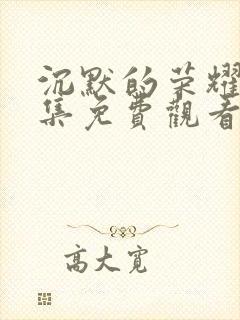 沉默的荣耀
集免費觀看
高大寬